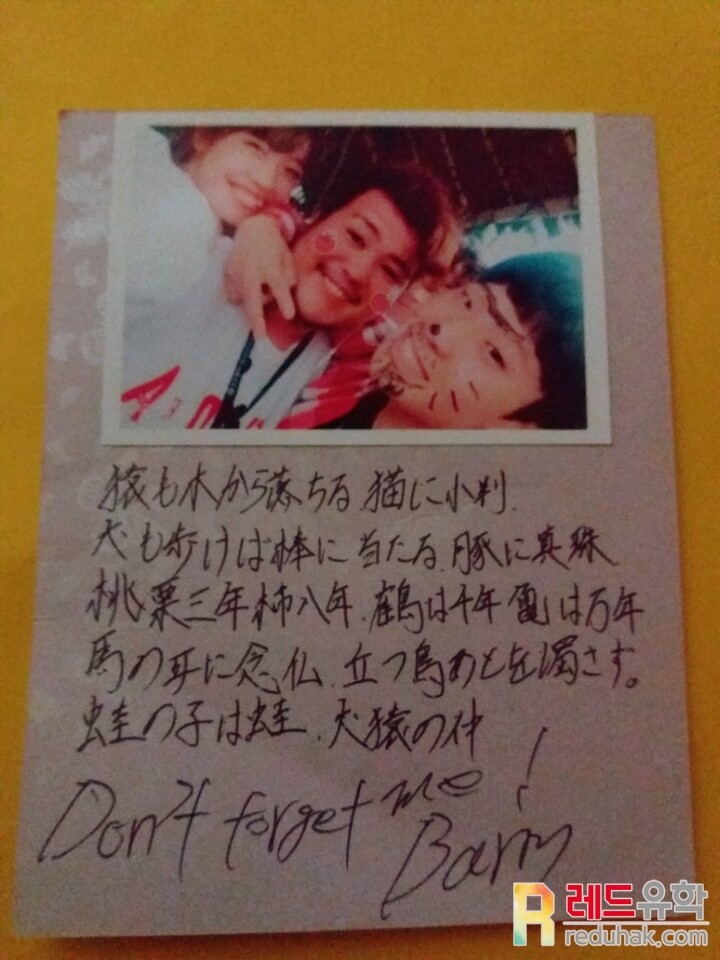 猿も木から落ちる 猫に小判.
犬も歩けば棒に当たる.豚に真珠
桃栗三年柿八年.鶴は千年亀は万年
馬の耳に念仏.立つ鳥あとを濁さず。
蛙の子は蛙.犬猿の仲
Don't forget me!
Barry
레드유학
reduhak.com